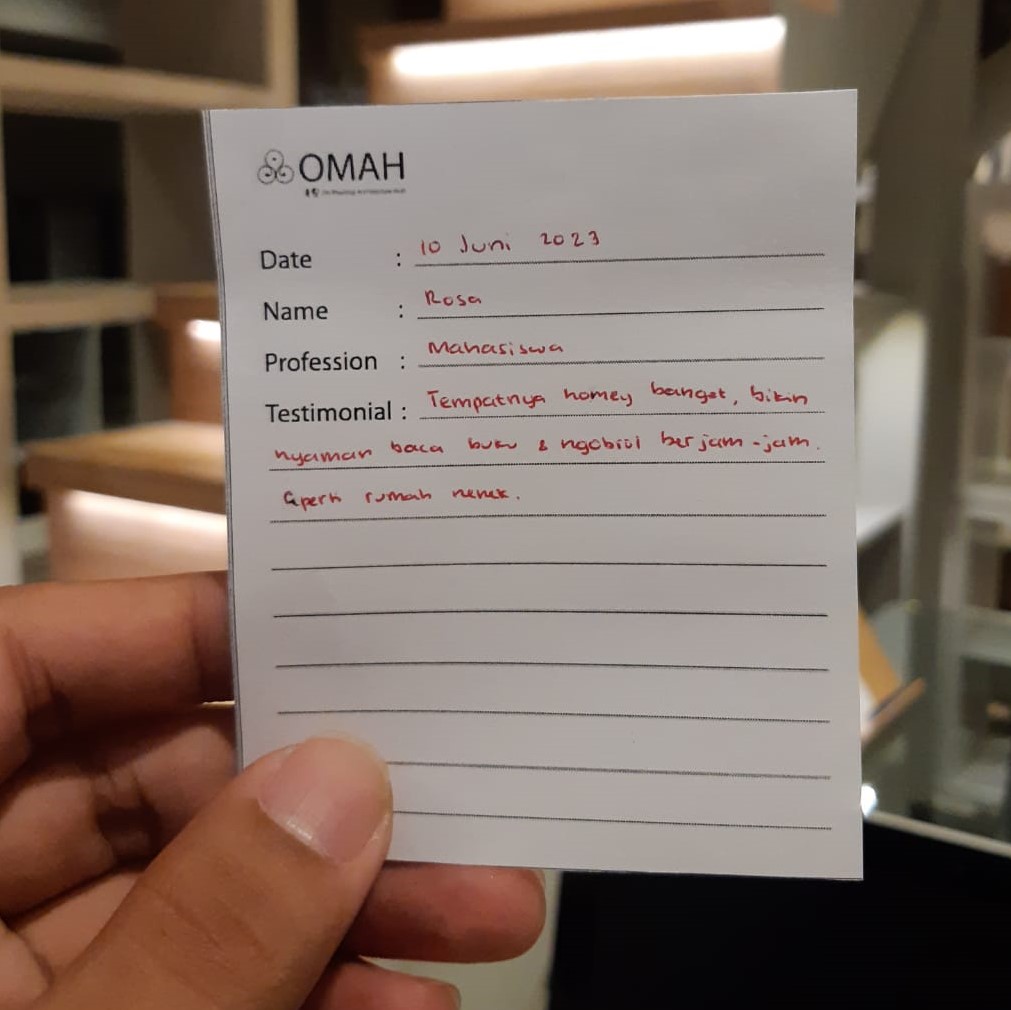 OMAH
Date : 10 Juni 2023
Name : Rosa
Profession : Mahasiswa
Testimonial : Tempatnya homey banget, bikin
nyaman baca buku & ngobrol berjam-jam.
Seperti rumah nenek.